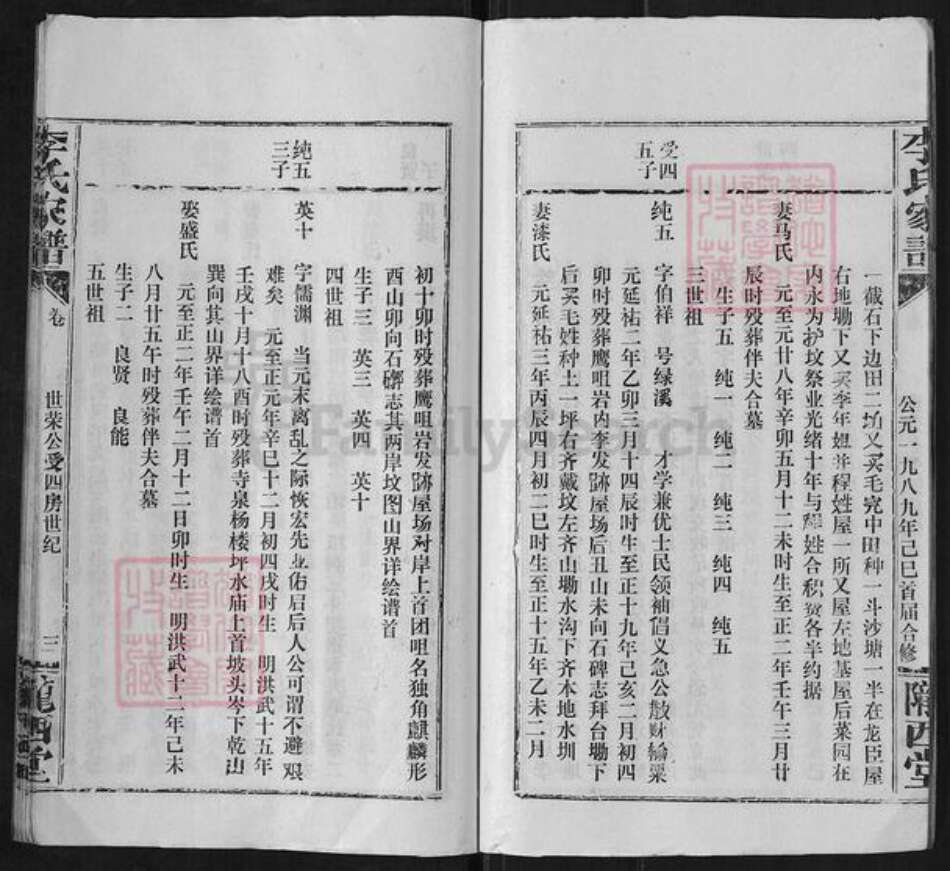 李氏家谱
公元一九八九年己巳首届合修
陇西堂
一截石下边田二坵又买毛究中田种一斗沙塘一半在龙臣屋
右地塝下又买李年姐并程姓屋一所又屋左地基屋后菜园在
内永为护坟祭业光绪十年与 姓合积 各半约据
妻马氏 元至元廿八年辛卯五月十二未时生至正二年壬午三月廿
辰时殁葬伴夫合墓
生子五 纯一 纯二 纯三 纯四 纯五
三世祖
受四
五子
纯五 字伯祥 号绿溪 才学兼优士民领袖倡义急公散财输粟
元延祐二年乙卯三月十四辰时生至正十九年己亥二月初四
卯时殁葬鹰咀岩内李发跡屋场后丑山未向石碑志拜台塝下
后买毛姓种土一坪右齐戴坟左齐山塝水沟下齐本地水圳
妻漆氏 元延祐三年丙辰四月初二巳时生至正十五年乙未二月
初十卯时殁葬鹰咀岩发跡屋场对岸上首团咀名独角麒麟形
酉山卯向石磜志其两岸坟图山界详绘谱首
生子三 英三 英四 英十
四世祖
纯五
三子
英十 字儒渊 当元末离乱之际恢宏先业佑启后人公可谓不避艰
难矣 元至正元年辛巳十二月初四戌时生 明洪武十五年
壬戌十月十八酉时殁葬寺泉杨楼坪水庙上首坡头岑下乾山
巽向其山界详绘谱首
娶盛氏 元至正二年壬午二月十二日卯时生 明洪武十二年己未
八月廿五午时殁葬伴夫合墓
生子二 良贤 良能
五世祖
李氏家谱
卷 世荣公受四房世纪 三
陇西堂
FamilySearch